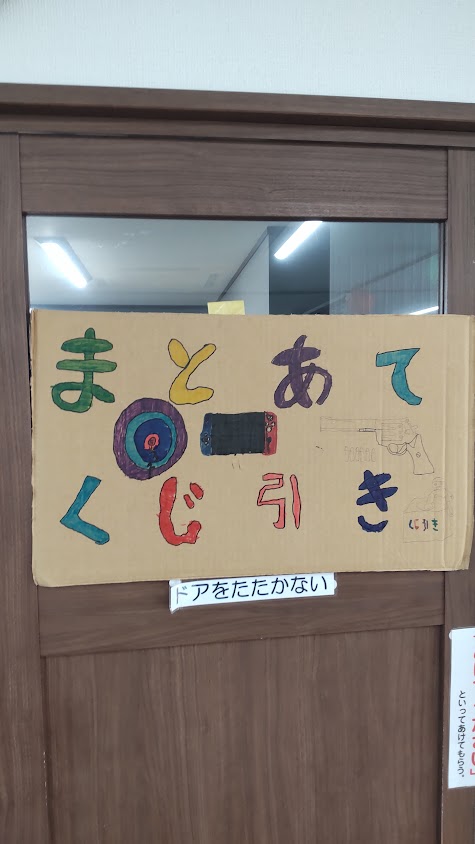 まとあて
くじ引き
くじ引き
ドアをたたかない
といってあけてもらう。